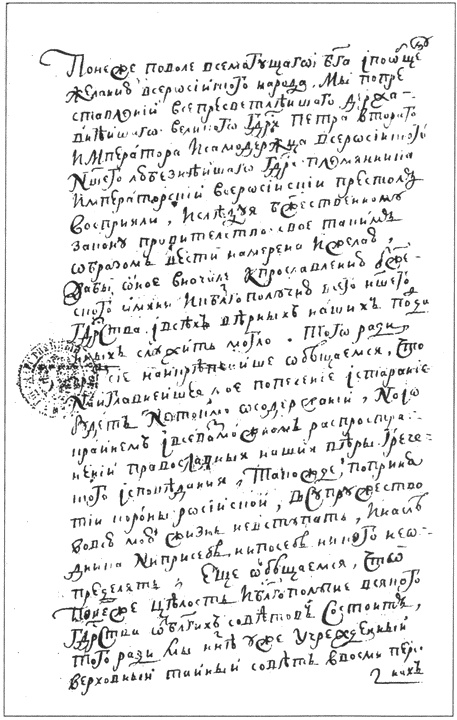 Понеже поволе всемогущагѡ бг҃а ıпоѡбще
желанию всеросıйского народа, Мы попре
ставленıй всепресветлѣишаго Держа-
внѣишагѡ великого Гдр҃я Петра втораго
Императора Исамодержца Всеросıйского
Ншего любезнѣишаго Гдр҃я племянника
Императорскıй всеросıйскıи престолъ
Восприяли, Ислѣдуя бжественному
закону правителство свое такимъ
ѡбразомъ вести намерена Ижелаю,
Дабы ѡное вначале Кпрославлению бже-
ского имяни Икблгополучию всего ншего
Гдрства, ıвсѣхъ вѣрныхъ нашихъ подда
нныхъ служить могло. Того ради
сıе наикрѣпчайше ѡбѣщаемся, что
Наиглавнейшее мое попечение ıстаранıе
будетъ Нетокмо ѡсодержанıй, Ноıѡ
крайнемъ ıвсевозможномъ распростра-
ненıй православныя нашия вѣры Грече-
ского ıсповѣдания, Такожде, поприня
тıи короны росıйской, Всупружество
вовсю мою жизнь невступать, Инаслѣ
дника Ниприсебѣ нипосебѣ никого неѡ-
пределять, Еще ѡбѣщаемся, что
Понеже цѣлость Иблгополучıе всякого
Гдрства ѿблгихъ совѣтовъ Состоитъ,
того ради Мы ннѣ уже Учрежденный
верховный тайный совѣтъ ввосми пер-